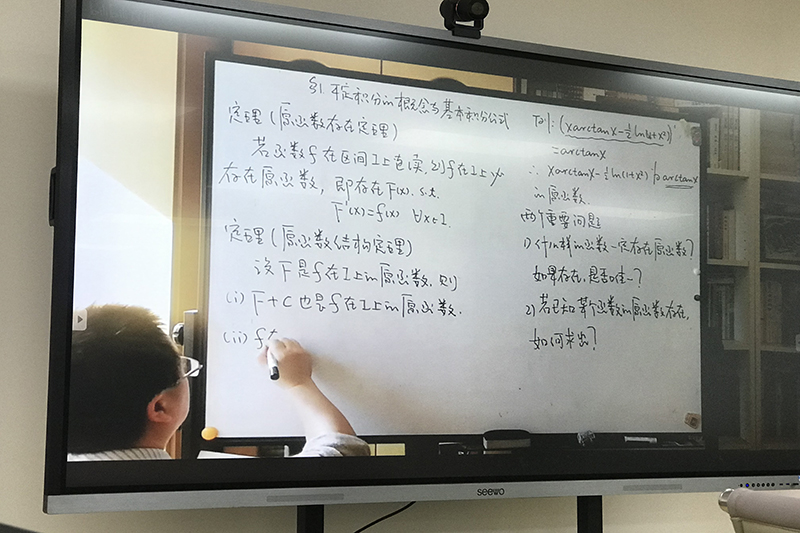 §1 不定积分的概念与基本积分公式
定理(原函数存在定理)
若函数f在区间I上连续,则f在I上必
存在原函数,即存在F(x). s.t.
F'(x)=f(x) ∀x∈I.
定理(原函数结构定理)
设F是f在I上的原函数,则
(i) F+C也是f在I上的原函数.
(ii) f在
例1: (xarctanx-½ln(1+x²))'
=arctanx
∴ xarctanx-½ln(1+x²)为arctanx
的原函数.
两个重要问题
1) 什么样的函数一定存在原函数?
如果存在,是否唯一?
2) 若已知某个函数的原函数存在,
如何求出?
seewo